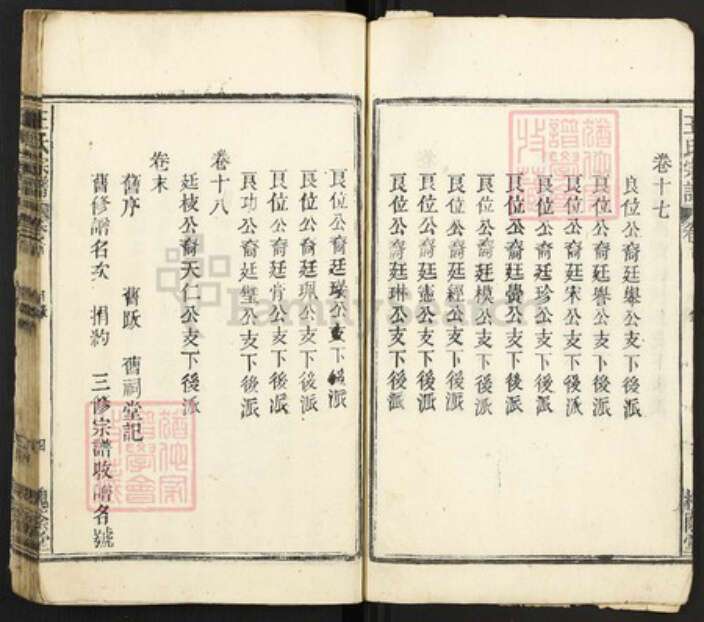 卷十七
良位公裔廷舉公支下後派
良位公裔廷譽公支下後派
良位公裔廷宋公支下後派
良位公裔廷珍公支下後派
良位公裔廷爵公支下後派
良位公裔廷模公支下後派
良位公裔廷經公支下後派
良位公裔廷憲公支下後派
良位公裔廷琳公支下後派
良位公裔廷瑛公支下後派
良位公裔廷珮公支下後派
良位公裔廷肯公支下後派
良功公裔廷璧公支下後派
卷十八
廷枝公裔天仁公支下後派
卷末
舊序 舊跋 舊祠堂記
舊修譜名次 捐約 三修宗譜收譜名號
王氏宗譜
槐蔭堂
FamilySearch